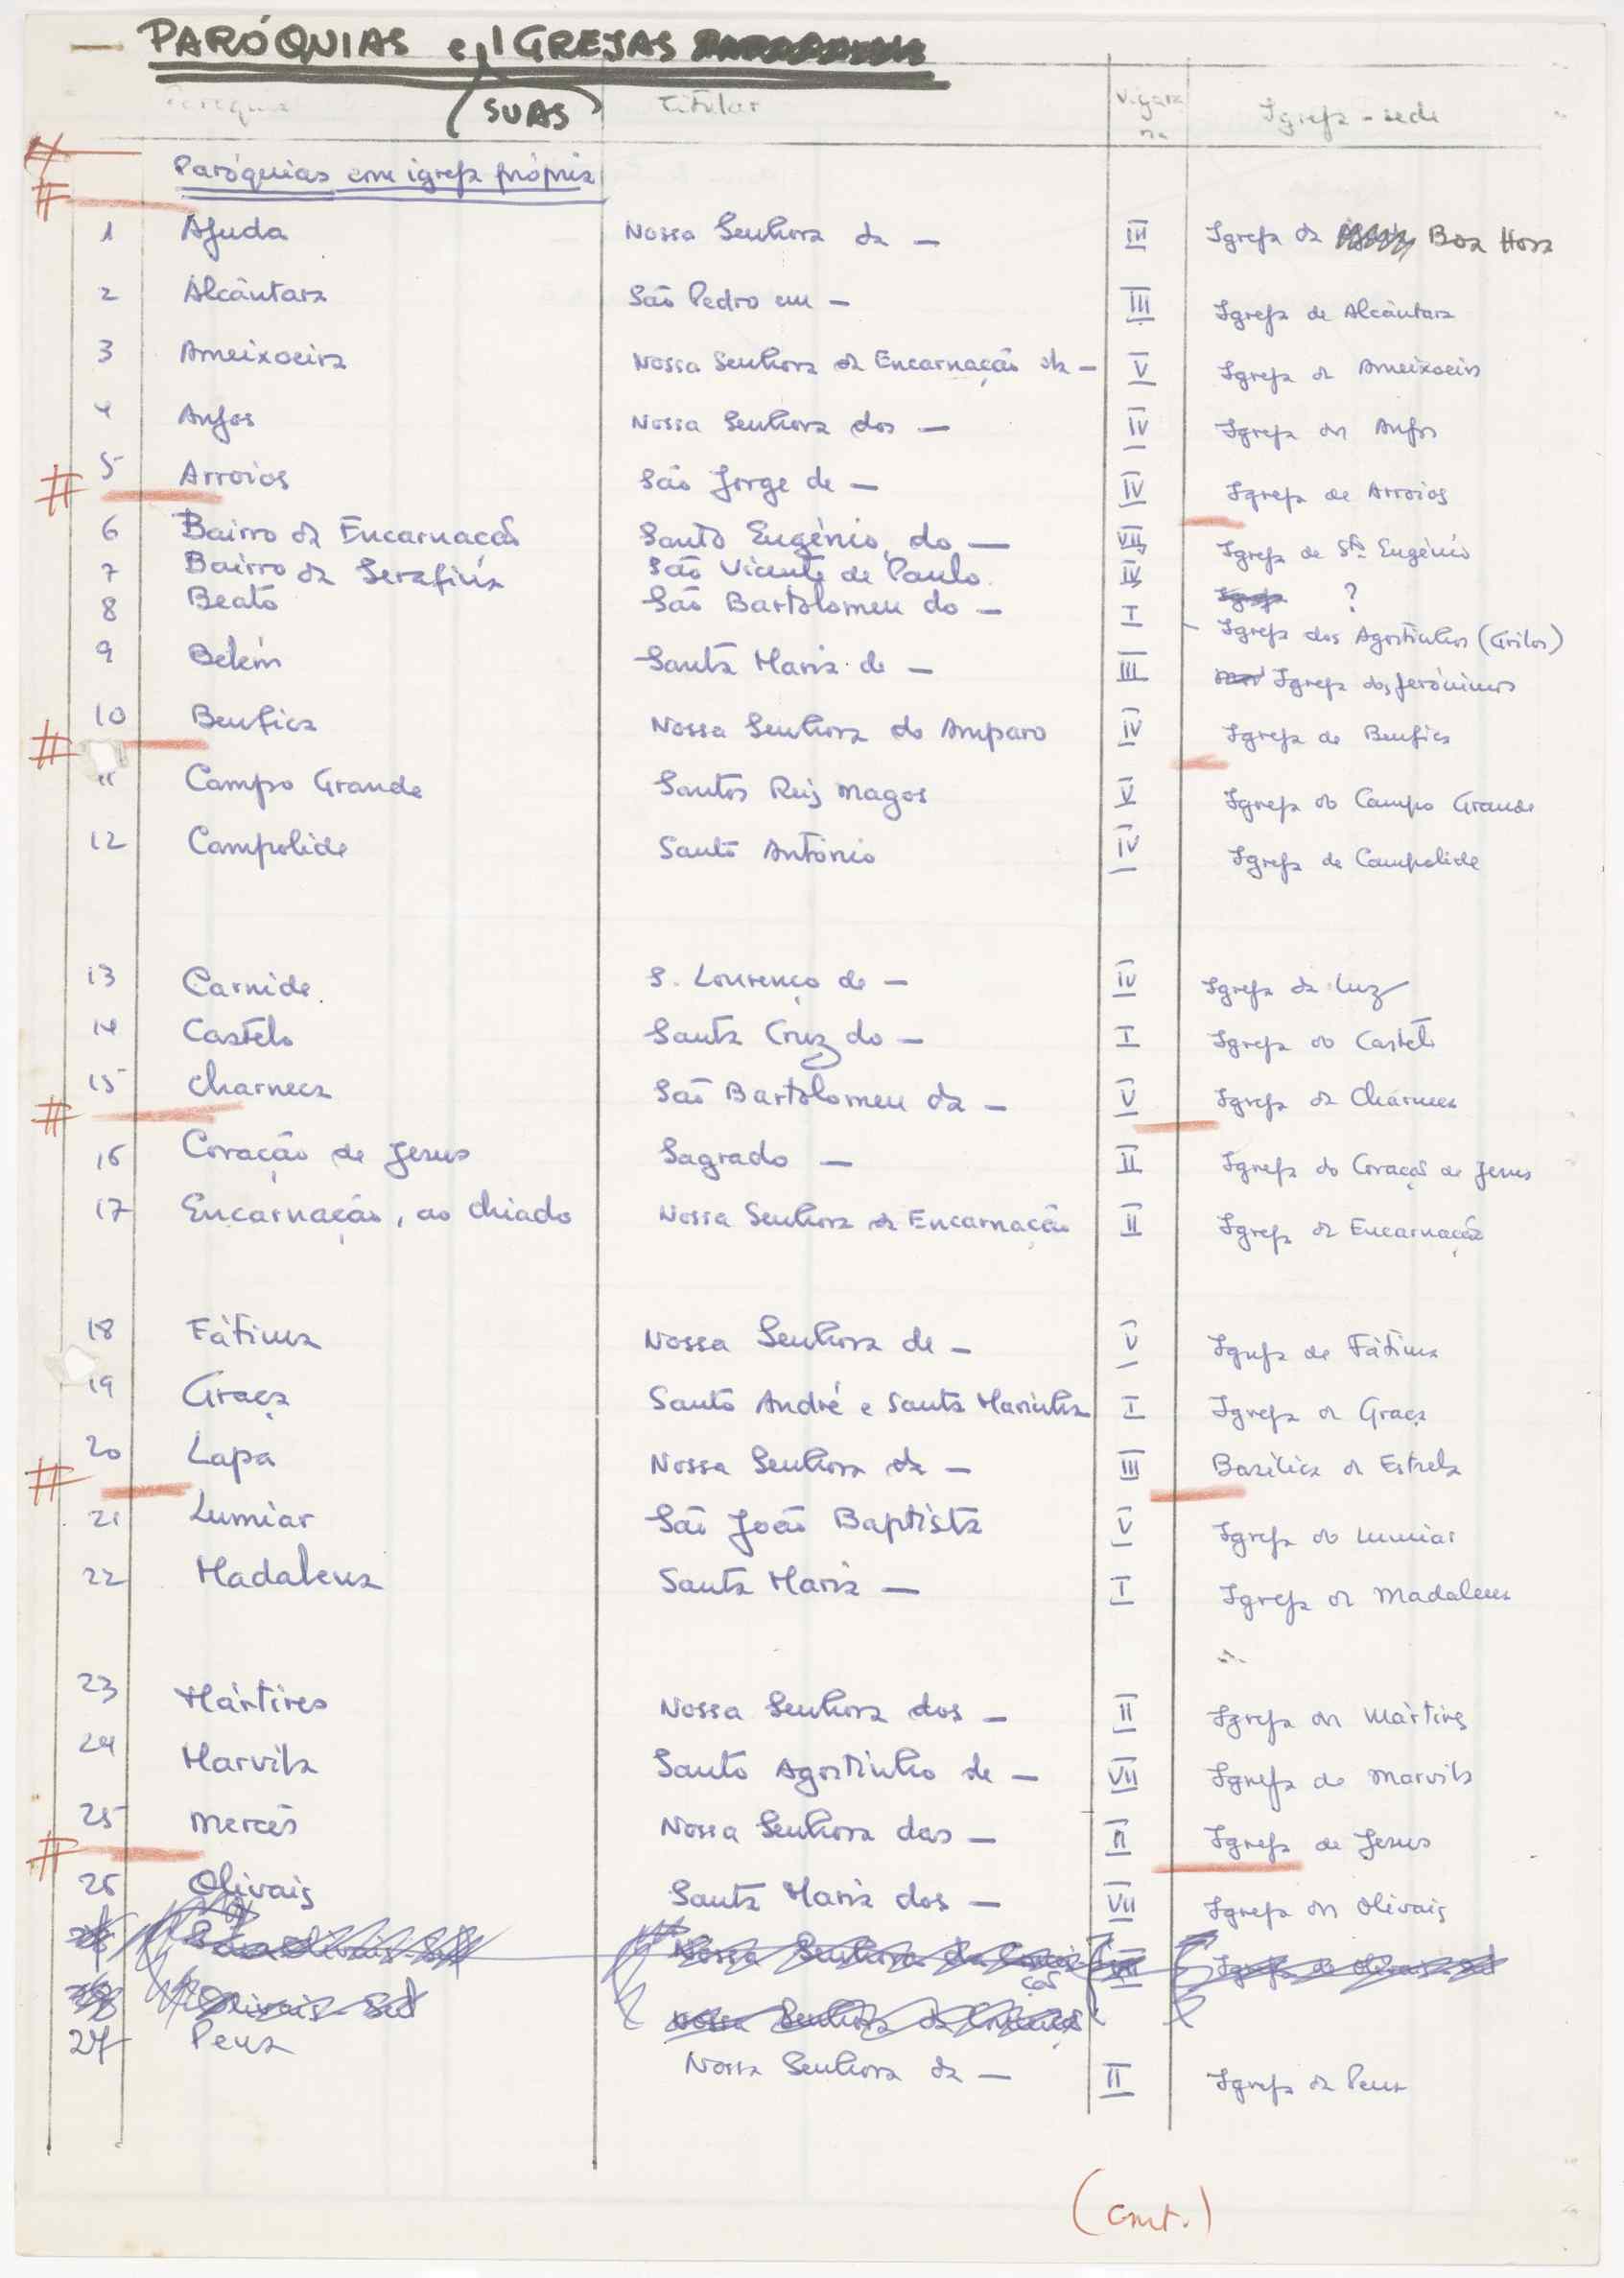 — PARÓQUIAS e IGREJAS
(SUAS)
Titular
Vigara
ria
Igreja - sede
Paróquias com igreja própria
1 Ajuda Nossa Senhora da — III Igreja da Boa Hora
2 Alcântara São Pedro em — III Igreja de Alcântara
3 Ameixoeira Nossa Senhora da Encarnação da — V Igreja da Ameixoeira
4 Anjos Nossa Senhora dos — IV Igreja dos Anjos
# 5 Arroios São Jorge de — IV Igreja de Arroios
6 Bairro da Encarnação Santo Eugénio, do — VII Igreja de Stº Eugénio
7 Bairro da Serafina São Vicente de Paulo IV ?
8 Beato São Bartolomeu do — I - Igreja dos Agostinhos (Grilos)
9 Belém Santa Maria de — III Igreja dos Jerónimos
# 10 Benfica Nossa Senhora do Amparo IV Igreja de Benfica
11 Campo Grande Santos Reis Magos V Igreja do Campo Grande
12 Campolide Santo António IV Igreja de Campolide
13 Carnide S. Lourenço de — IV Igreja da Luz
14 Castelo Santa Cruz do — I Igreja do Castelo
# 15 Charneca São Bartolomeu da — V Igreja da Charneca
16 Coração de Jesus Sagrado — II Igreja do Coração de Jesus
17 Encarnação, ao Chiado Nossa Senhora da Encarnação II Igreja da Encarnação
18 Fátima Nossa Senhora de — V Igreja de Fátima
19 Graça Santo André e Santa Marinha I Igreja da Graça
# 20 Lapa Nossa Senhora da — III Basílica da Estrela
21 Lumiar São João Baptista V Igreja do Lumiar
22 Madalena Santa Maria — I Igreja da Madalena
23 Mártires Nossa Senhora dos — II Igreja dos Mártires
24 Marvila Santo Agostinho de — VII Igreja de Marvila
# 25 Mercês Nossa Senhora das — II Igreja de Jesus
26 Olivais Santa Maria dos — VII Igreja dos Olivais
Olivais-Sul
27 Pena Nossa Senhora da — II Igreja da Pena
(cont.)